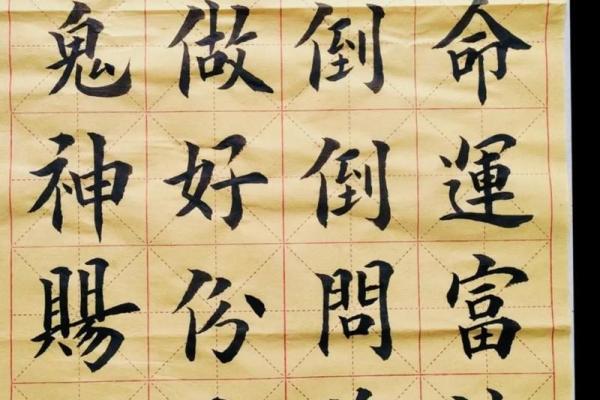 命運富
倒倒問
做好份
鬼神賜